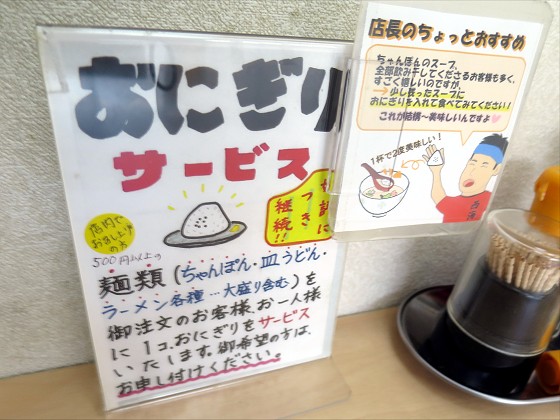 おにぎり
サービス
好評に
つき
継続!!
店内で
お召し上がり
の方
500円以上の
麺類(ちゃんぽん・皿うどん・
ラーメン各種…大盛り含む)を
御注文のお客様、お一人様
に1コ、おにぎりをサービス
いたします。御希望の方は、
お申し付けください。
店長のちょっとおすすめ
ちゃんぽんのスープ、
全部飲み干してくださるお客様も多く、
すごく嬉しいのですが、
→少し残ったスープに
おにぎりを入れて食べてみてください!
これが結構〜美味しいんですよ
1杯で2度美味しい!